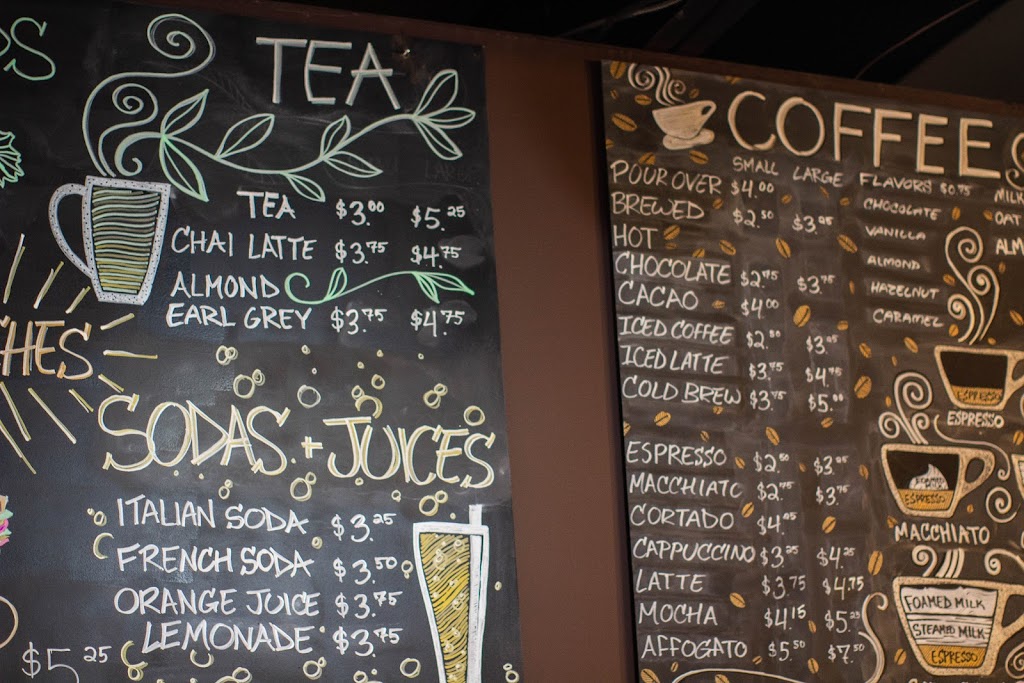 PS
TEA
TEA $3.00 $5.25
CHAI LATTE $3.75 $4.75
ALMOND
EARL GREY $3.75 $4.75
CHES
SODAS + JUICES
ITALIAN SODA $3.25
FRENCH SODA $3.50
ORANGE JUICE $3.75
LEMONADE $3.75
$5.25
COFFEE
SMALL LARGE
POUR OVER $4.00
BREWED $2.50 $3.25
HOT
CHOCOLATE $2.75 $3.75
CACAO $4.00
ICED COFFEE $2.50 $3.25
ICED LATTE $3.75 $4.75
COLD BREW $3.75 $5.00
ESPRESSO $2.50 $3.25
MACCHIATO $2.75 $3.75
CORTADO $4.05
CAPPUCCINO $3.25 $4.25
LATTE $3.75 $4.75
MOCHA $4.15 $5.25
AFFOGATO $5.50 $7.50
FLAVORS $0.75
CHOCOLATE
VANILLA
ALMOND
HAZELNUT
CARAMEL
MILK
OAT
ALM
ESPRESSO
ESPRESSO
ESPRESSO
MACCHIATO
FOAMED MILK
STEAMED MILK
ESPRESSO